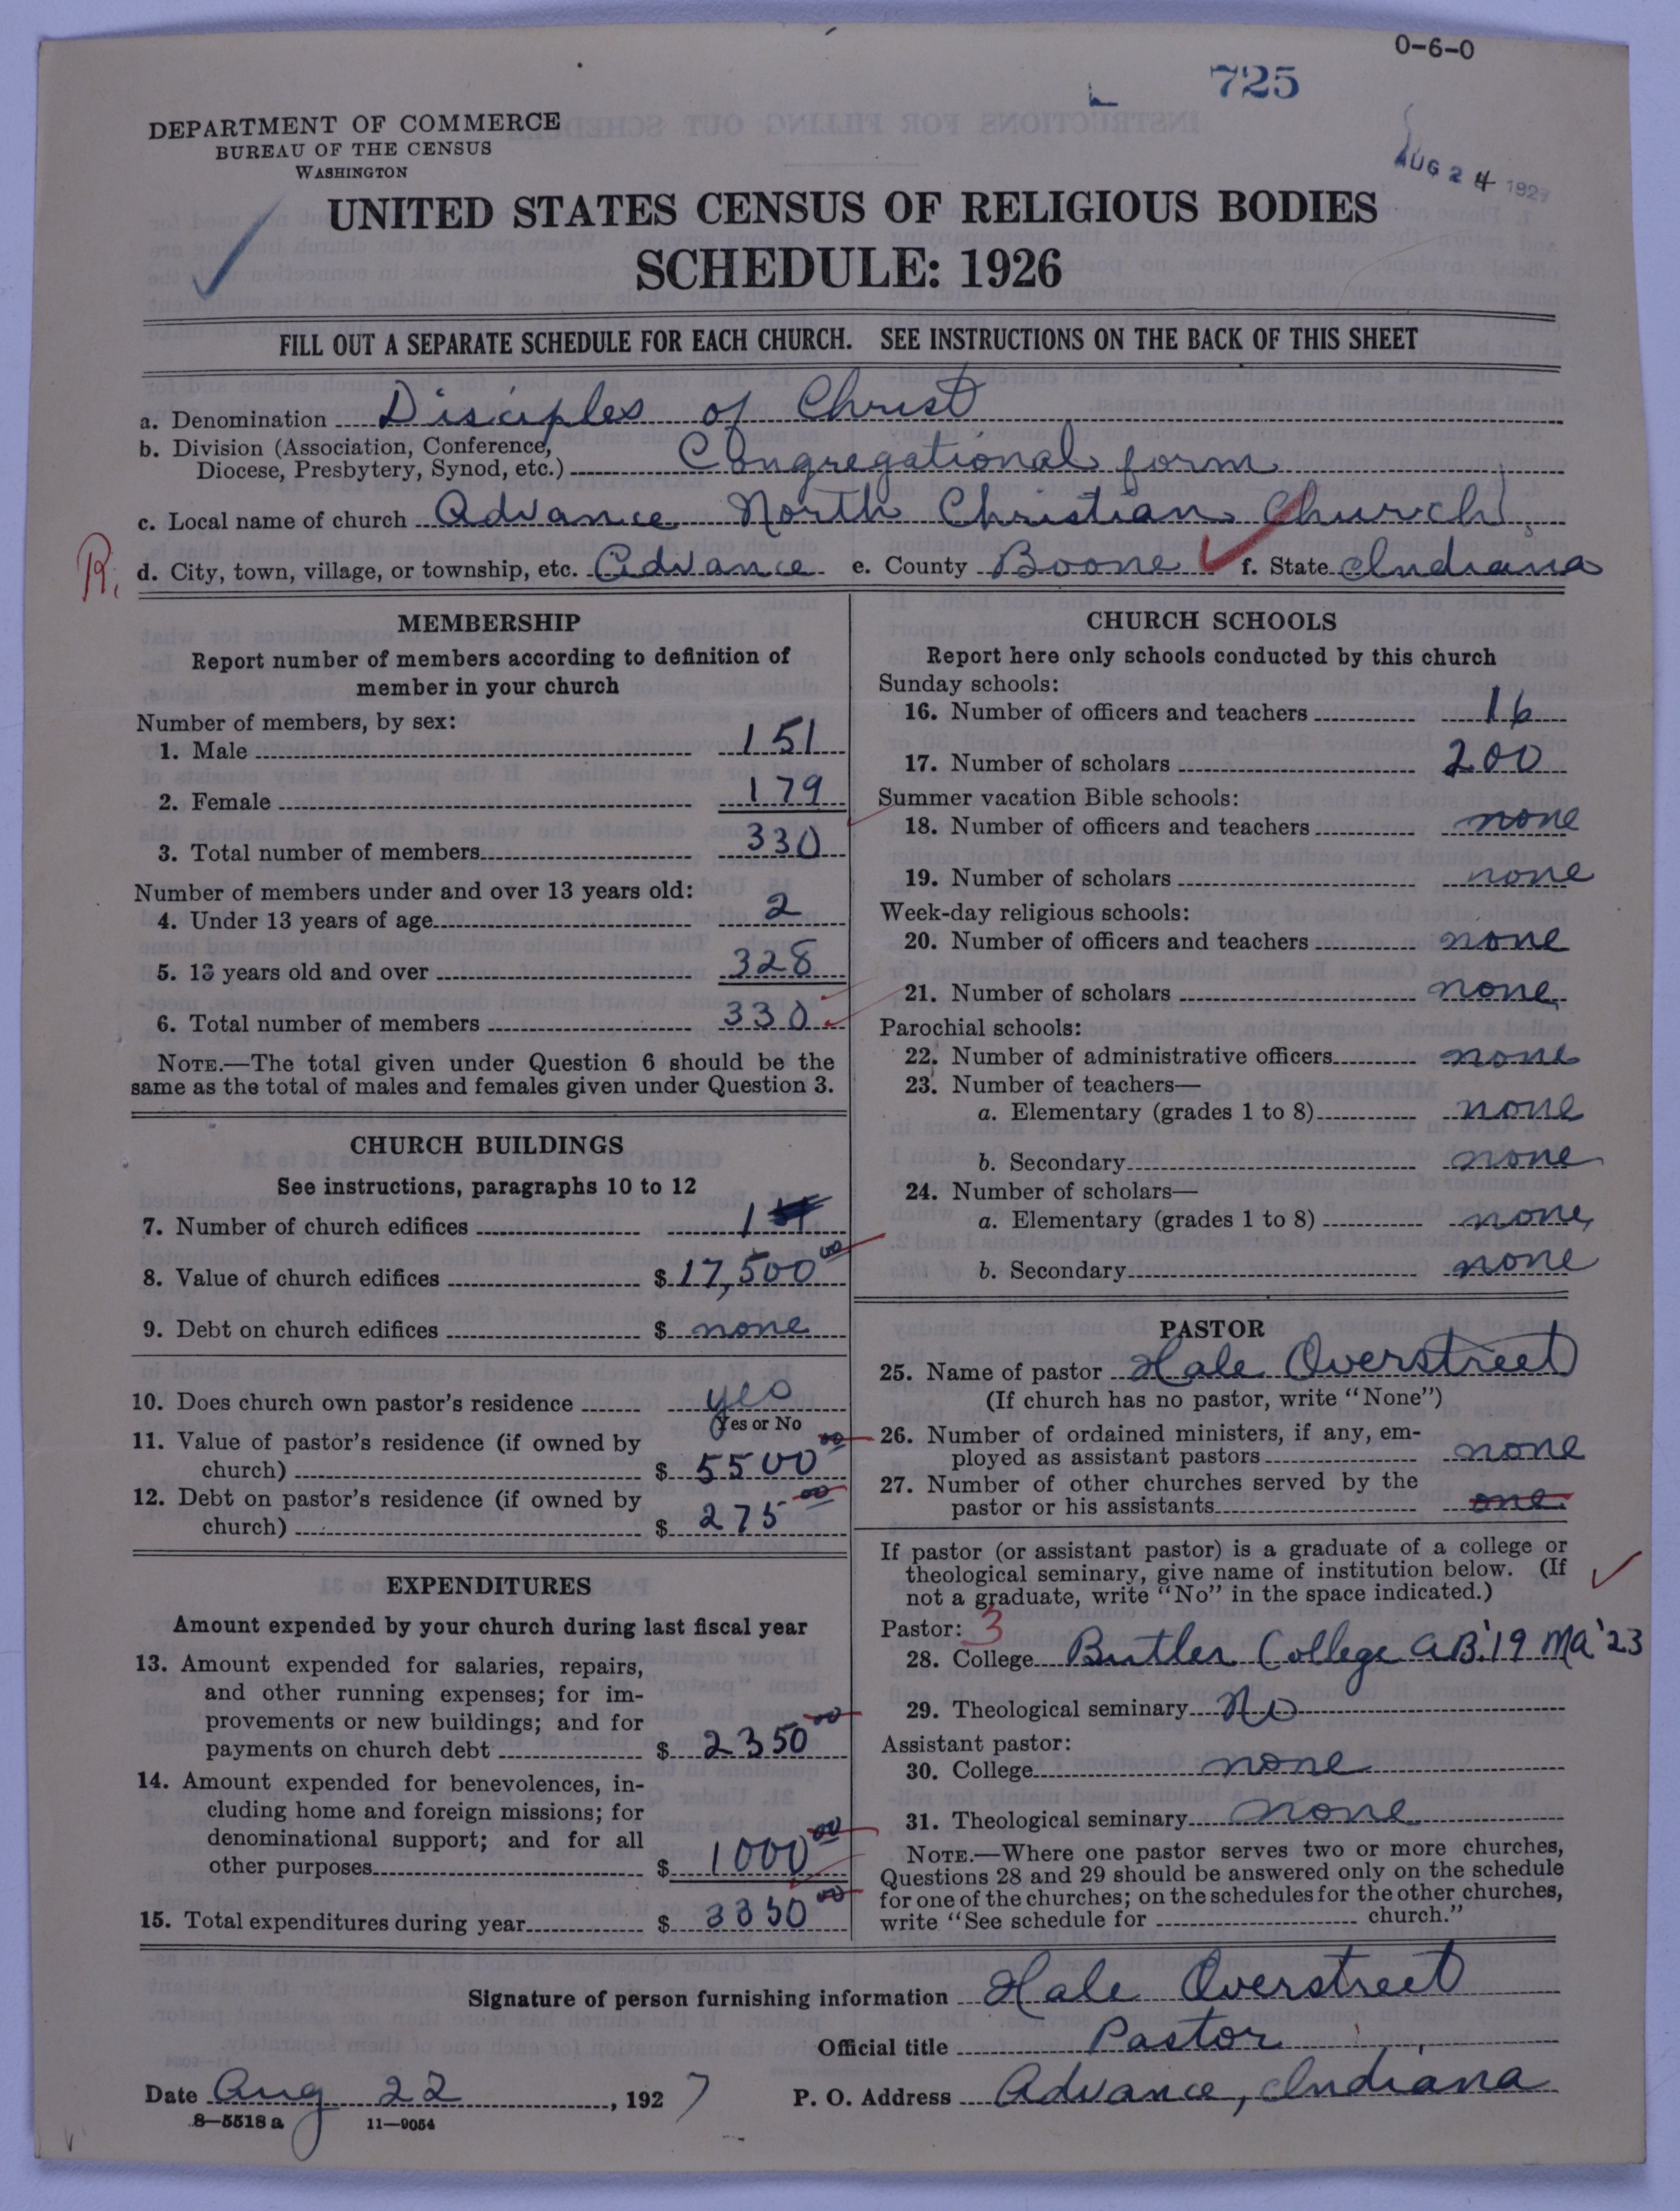 0-6-0
725
AUG 24 1927
DEPARTMENT OF COMMERCE
BUREAU OF THE CENSUS
WASHINGTON
UNITED STATES CENSUS OF RELIGIOUS BODIES
SCHEDULE: 1926
FILL OUT A SEPARATE SCHEDULE FOR EACH CHURCH. SEE INSTRUCTIONS ON THE BACK OF THIS SHEET
a. Denomination Disciples of Christ
b. Division (Association, Conference,
Diocese, Presbytery, Synod, etc.) Congregational form
c. Local name of church Advance North Christian Church
R. d. City, town, village, or township, etc. Advance e. County Boone f. State Indiana
MEMBERSHIP
Report number of members according to definition of
member in your church
Number of members, by sex:
1. Male 151
2. Female 179
3. Total number of members 330
Number of members under and over 13 years old:
4. Under 13 years of age 2
5. 13 years old and over 328
6. Total number of members 330
NOTE.—The total given under Question 6 should be the
same as the total of males and females given under Question 3.
CHURCH BUILDINGS
See instructions, paragraphs 10 to 12
7. Number of church edifices 1
8. Value of church edifices $ 17,500 00
9. Debt on church edifices $ none
10. Does church own pastor's residence yes
(Yes or No
11. Value of pastor's residence (if owned by
church) $ 5500 00
12. Debt on pastor's residence (if owned by
church) $ 275 00
EXPENDITURES
Amount expended by your church during last fiscal year
13. Amount expended for salaries, repairs,
and other running expenses; for im-
provements or new buildings; and for
payments on church debt $ 2350 00
14. Amount expended for benevolences, in-
cluding home and foreign missions; for
denominational support; and for all
other purposes $ 1000 00
15. Total expenditures during year $ 3350 00
CHURCH SCHOOLS
Report here only schools conducted by this church
Sunday schools:
16. Number of officers and teachers 16
17. Number of scholars 200
Summer vacation Bible schools:
18. Number of officers and teachers none
19. Number of scholars none
Week-day religious schools:
20. Number of officers and teachers none
21. Number of scholars none
Parochial schools:
22. Number of administrative officers none
23. Number of teachers—
a. Elementary (grades 1 to 8) none
b. Secondary none
24. Number of scholars—
a. Elementary (grades 1 to 8) none
b. Secondary none
PASTOR
25. Name of pastor Hale Overstreet
(If church has no pastor, write "None")
26. Number of ordained ministers, if any, em-
ployed as assistant pastors none
27. Number of other churches served by the
pastor or his assistants one
If pastor (or assistant pastor) is a graduate of a college or
theological seminary, give name of institution below. (If
not a graduate, write "No" in the space indicated.)
Pastor: 3
28. College Butler College AB '19 MA '23
29. Theological seminary No
Assistant pastor:
30. College none
31. Theological seminary none
NOTE.—Where one pastor serves two or more churches,
Questions 28 and 29 should be answered only on the schedule
for one of the churches; on the schedules for the other churches,
write "See schedule for church."
Signature of person furnishing information Hale Overstreet
Official title Pastor
Date Aug 22, 1927 P. O. Address Advance, Indiana
8—5518 a 11—9054